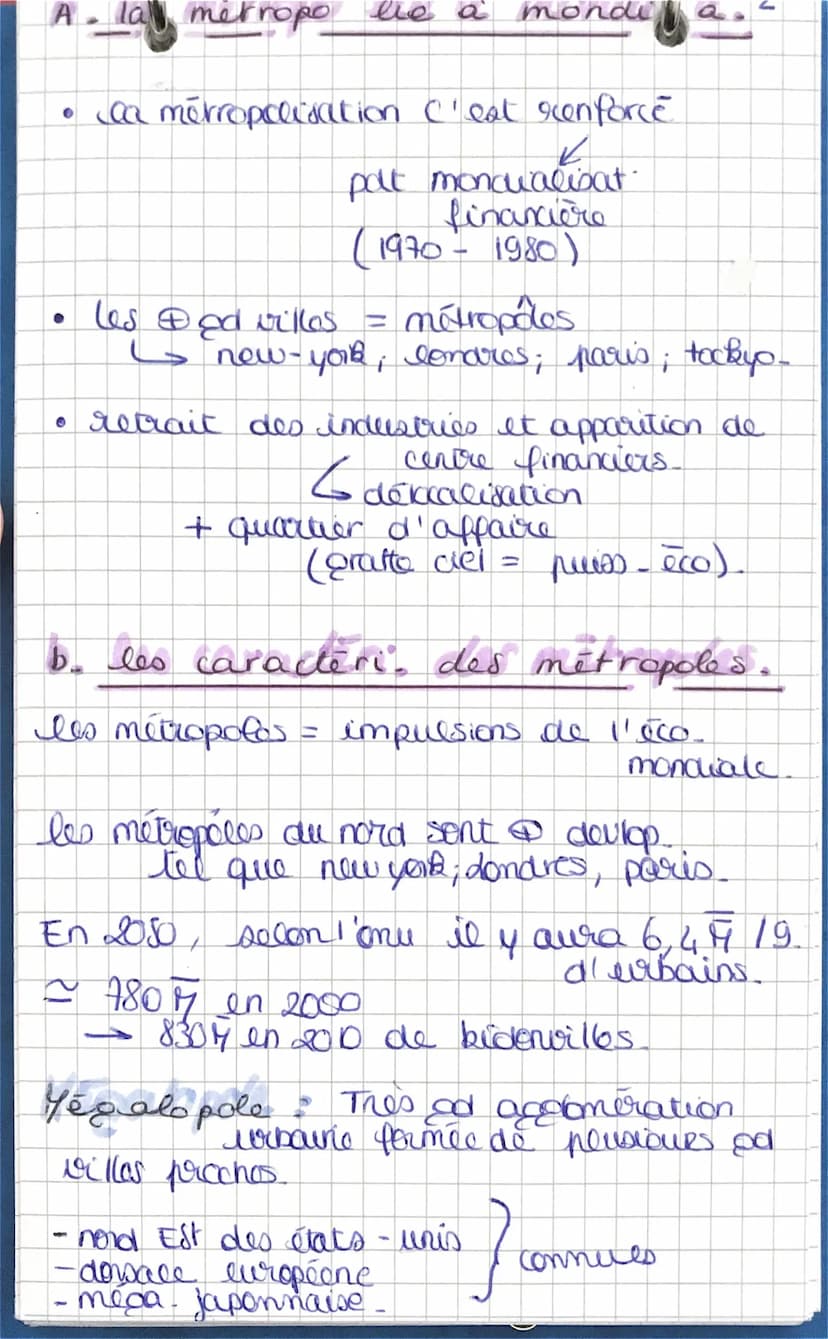 A. la métropo lié à mondi a.
• la métropolisation c'est renforcé
pdt mondialisat.
financière
(1970 - 1980)
• les ⊕ gd villes = métropôles
↳ new-york ; londres ; paris ; tockyo-
• retrait des industries et apparition de
centre financiers-
↳ délocalisation
+ quartier d'affaire
(gratte ciel = puiss - éco).
b. les caractéri. des métropoles.
les métropoles = impulsions de l'éco-
mondiale.
les métropoles du nord sont ⊕ devlop-
tel que new york ; londres, paris-
En 2050, selon l'onu il y aura 6,4 M /9.
d'urbains-
≃ 780 M en 2000
→ 830 M en 2010 de bidonvilles-
Mégalopole : Très gd agglomération
urbaine formée de plusieurs gd
villes proches-
- nord Est des états-unis
- dorsale européene
- méga- japonnaise-
} connues